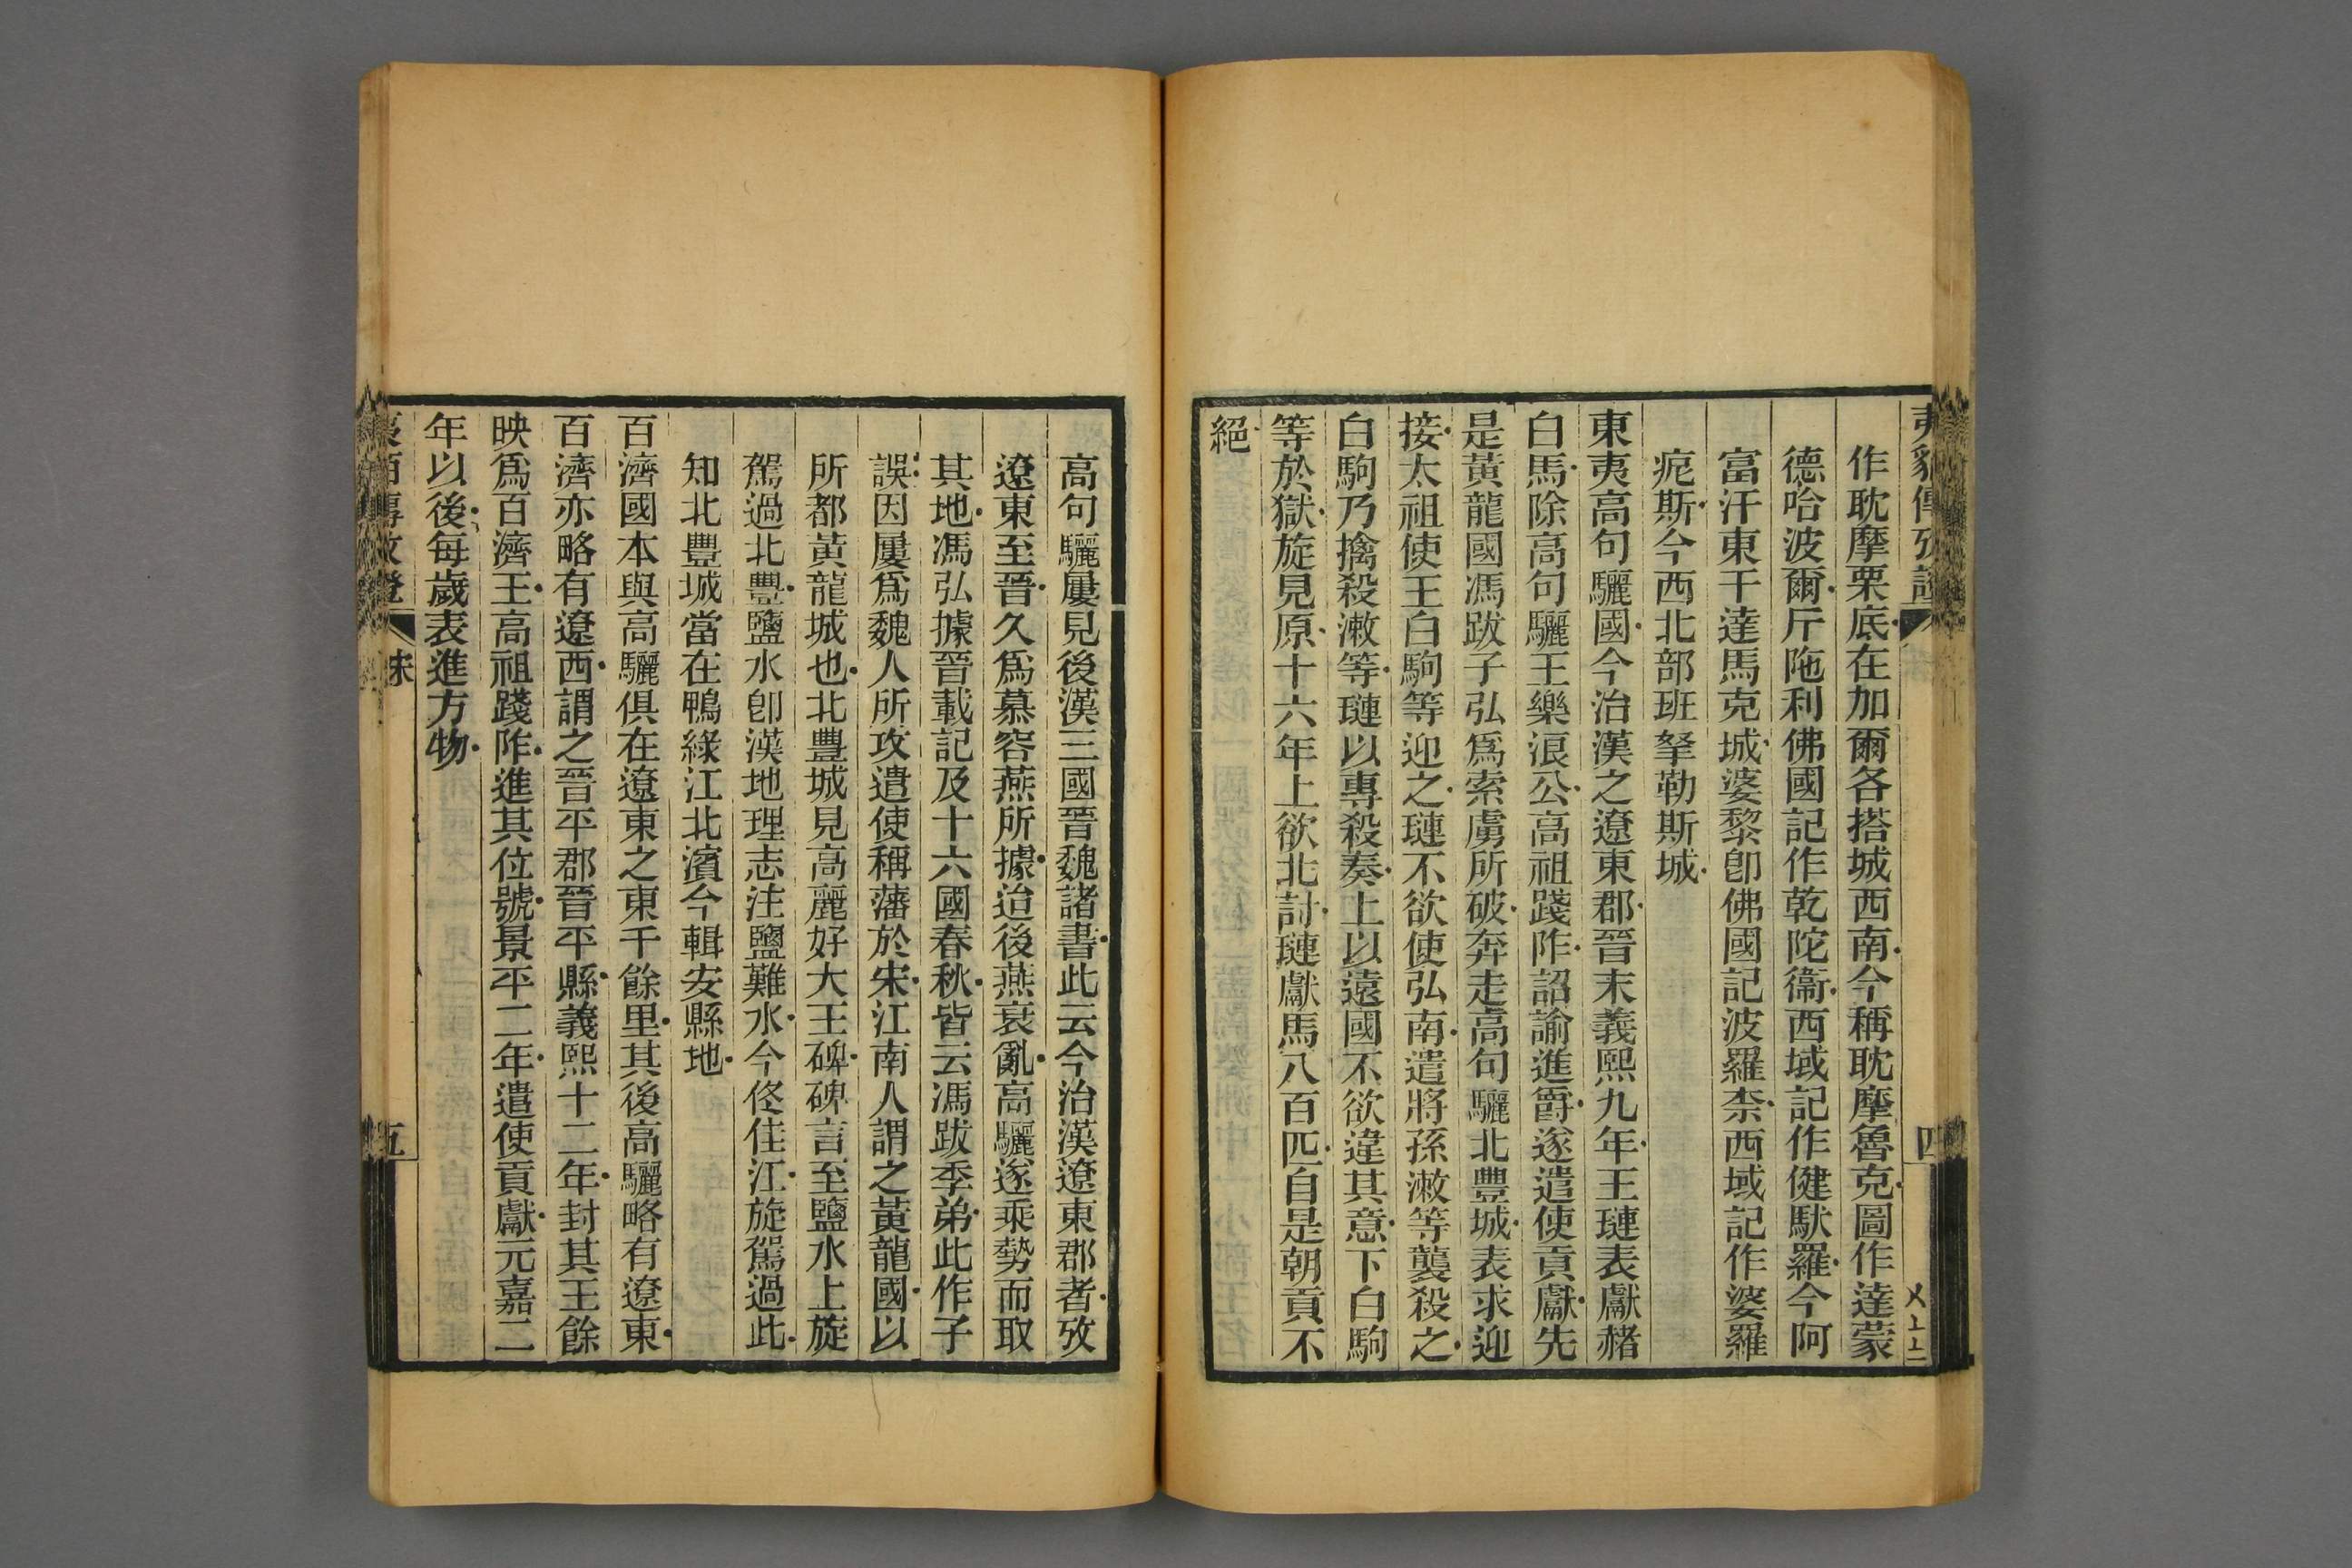 夷貊傳攷證
四
作耽摩栗底在加爾各搭城西南今稱耽摩魯克圖作達蒙
德哈波爾斤陁利佛國記作乾陀衞西域記作健馱羅今阿
富汗東干達馬克城婆黎卽佛國記波羅柰西域記作婆羅
痆斯今西北部班拏勒斯城
東夷高句驪國今治漢之遼東郡晉末義熙九年王璉表獻赭
白馬除高句驪王樂浪公高祖踐阼詔諭進爵遂遣使貢獻先
是黃龍國馮跋子弘爲索虜所破奔走高句驪北豐城表求迎
接太祖使王白駒等迎之璉不欲使弘南遣將孫漱等襲殺之
白駒乃擒殺漱等璉以專殺奏上以遠國不欲違其意下白駒
等於獄旋見原十六年上欲北討璉獻馬八百匹自是朝貢不
絕
高句驪屢見後漢三國晉魏諸書此云今治漢遼東郡者攷
遼東至晉久爲慕容燕所據迨後燕衰亂高驪遂乘勢而取
其地馮弘據晉載記及十六國春秋皆云馮跋季弟此作子
誤因屢爲魏人所攻遣使稱藩於宋江南人謂之黃龍國以
所都黃龍城也北豐城見高麗好大王碑碑言至鹽水上旋
駕過北豐鹽水卽漢地理志注鹽難水今佟佳江旋駕過此
知北豐城當在鴨綠江北濱今輯安縣地
百濟國本與高驪俱在遼東之東千餘里其後高驪略有遼東
百濟亦略有遼西謂之晉平郡晉平縣義熙十二年封其王餘
映爲百濟王高祖踐阼進其位號景平二年遣使貢獻元嘉二
年以後每歲表進方物
五